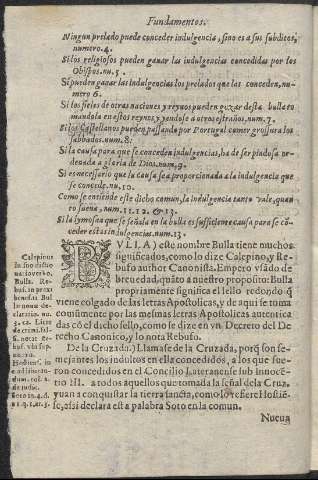 Fundamentos.
Ningun prelado puede conceder indulgencia, sino es a sus subditos,
numero.4.
Si los religiosos pueden ganar las indulgencias concedidas por los
Obispos.nu.5.
Si pueden ganar las indulgencias los prelados que las conceden, nu-
mero 6.
Si los fieles de otras naciones y reynos pueden gozar desta bulla to
mandola en estos reynos, yendose a otros estraños, num.7.
Si los Castellanos pueden passando por Portugal comer grossura los
sabbados.num.8.
Si la causa para que se conceden indulgencias, ha de ser piadosa or-
denada a gloria de Dios, num,9.
Si es necessario que la causa sea proporcionada a la indulgencia que
se concede.nu.10.
Como se entiende este dicho comun, la indulgencia tanto vale, quan
to suena, num.11.12.&.13.
Si la lymosna que se señala en la bulla es sufficiente causa para se cō-
ceder estas indulgencias.num.13.
BVLLA) este nombre Bulla tiene muchos
significados, como lo dize Calepino, y Re-
bufo author Canonista. Empero vsādo de
breuedad, quāto a nuestro proposito: Bulla
propriamente significa el sello redondo, q̄
viene colgado de las letras Apostolicas, y de aqui se toma
comūmente por las mesmas letras Apostolicas autentica
das cō el dicho sello, como se dize en vn Decreto del De
recho Canonico, y lo nota Rebufo.
De la Cruzada.) Llamase de la Cruzada, porq̄ son se-
mejantes los indultos en ella concedidos, a los que fue-
ron concedidos en el Concilio Lateranense sub Innocē-
tio III. a todos aquellos que tomada la señal de la Cruz,
yuan a conquistar la tierra sancta, como lo refiere Hostiē-
se, assi declara esta palabra Soto en la comun.
Nueua
Calepinus
in suo dictio
nario verbo,
Bulla. Re-
buf. in praxi
benef
Bul